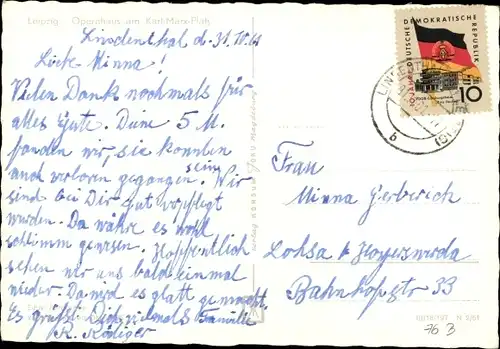 Leipzig Opernhaus am Karl-Marx-Platz
Linsdenthal d. 31. IV. 61
Liebe Minna!
Vielen Dank nochmals für
alles Gute. Deine 5 M.
fanden wir, sie konnten
auch verloren gegangen sein. Wir
sind bei Dir gut verpflegt
wurden. Da währe es wohl
schlimm gewesen. Hoffentlich
sehen wir uns bald einmal
wieder. Da wird es glatt gemacht.
Es grüßt Dich vielmals Familie
R. Rödiger
DEUTSCHE DEMOKRATISCHE REPUBLIK
10
b
Frau
Minna Gerberich
Lohsa b Hoyerswerda
Bahnhofstr 33
76 3